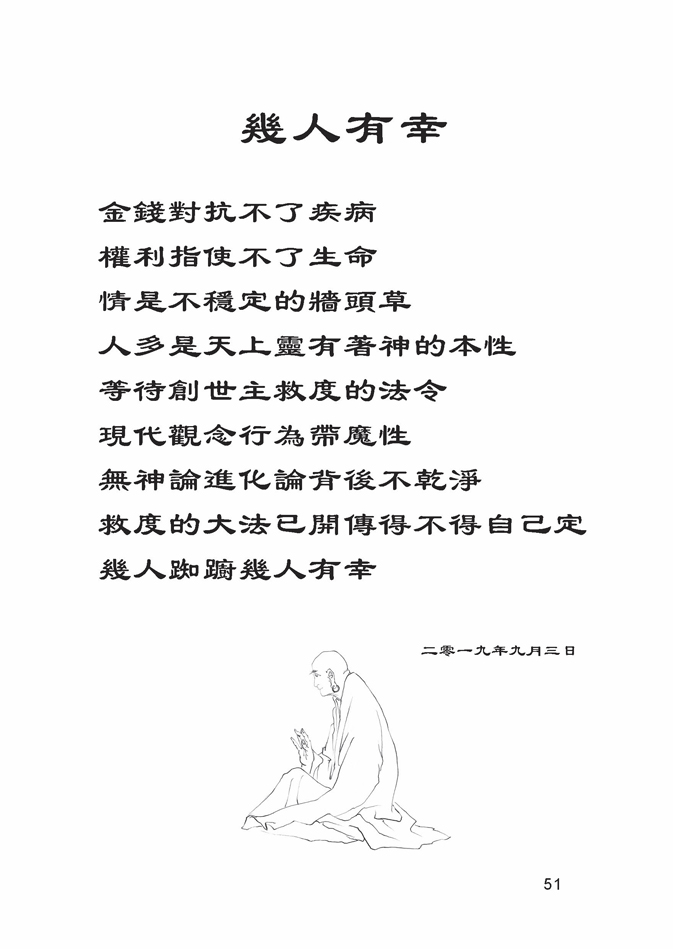 幾人有幸
金錢對抗不了疾病
權利指使不了生命
情是不穩定的牆頭草
人多是天上靈有著神的本性
等待創世主救度的法令
現代觀念行為帶魔性
無神論進化論背後不乾淨
救度的大法已開傳得不得自己定
幾人踟躕幾人有幸
二零一九年九月三日
51